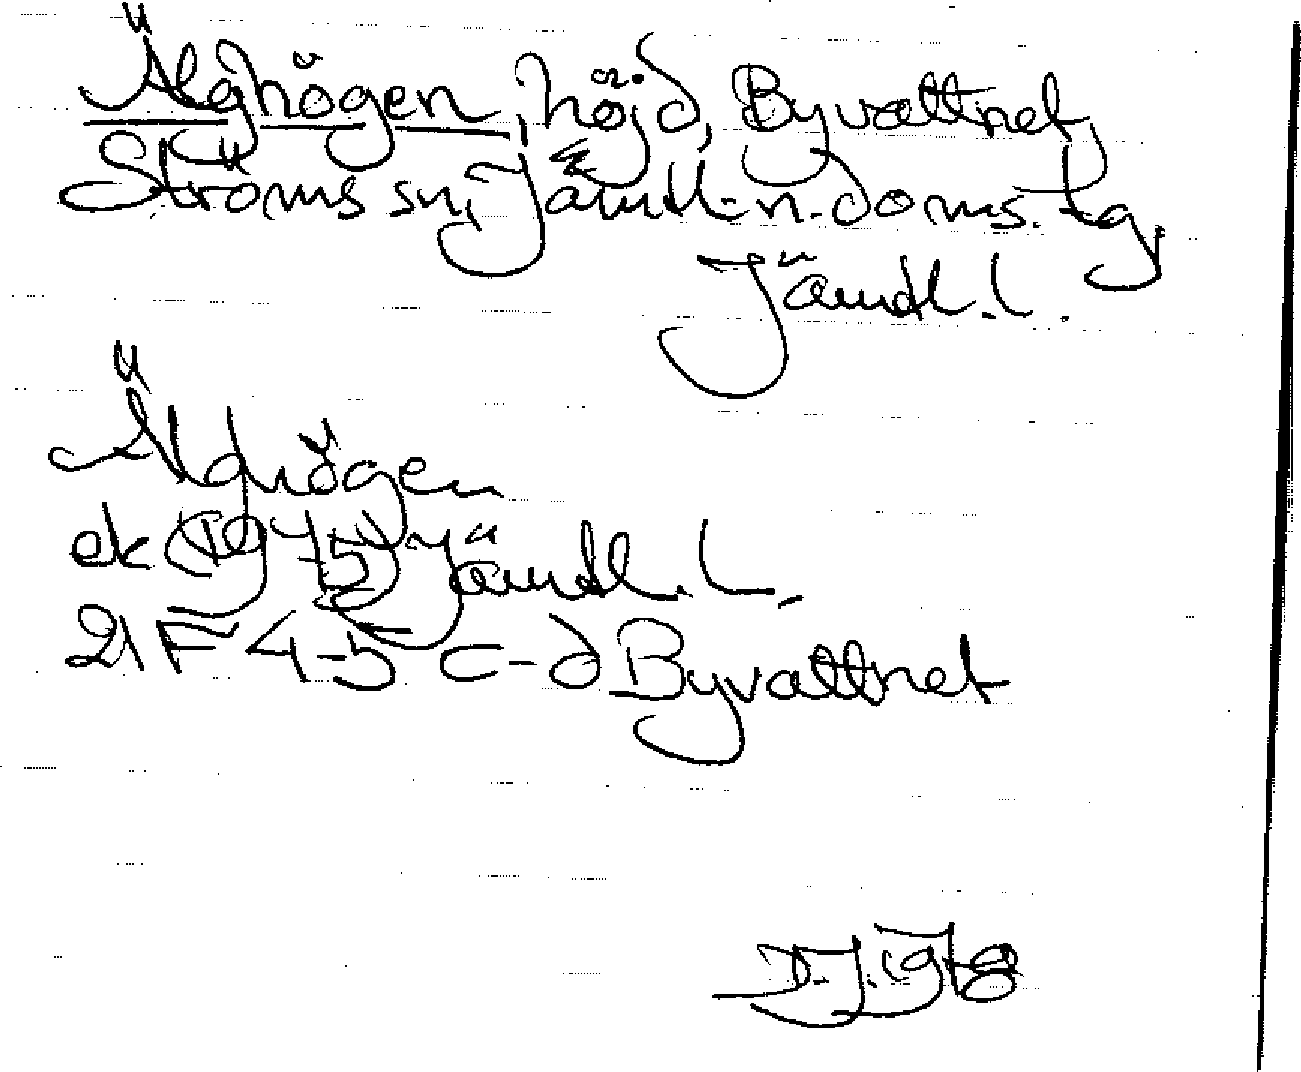 Älghögen, höjd, Byvattnet,
Ströms sn, Jämtl. n. doms. tg,
Jämtl. l.
Älghögen
ek (1975) Jämtl. L.
21 F 4-5 c-d Byvattnet
D.J. 1978